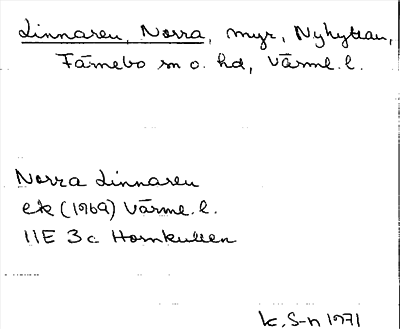 Linnareu, Norra, myr, Nyhyttan,
Färnebo sn o. hd, Värml. l.
Norra Linnareu
ek (1969) Värml. l.
11E 3c Hornkullen
K. S-n 1971